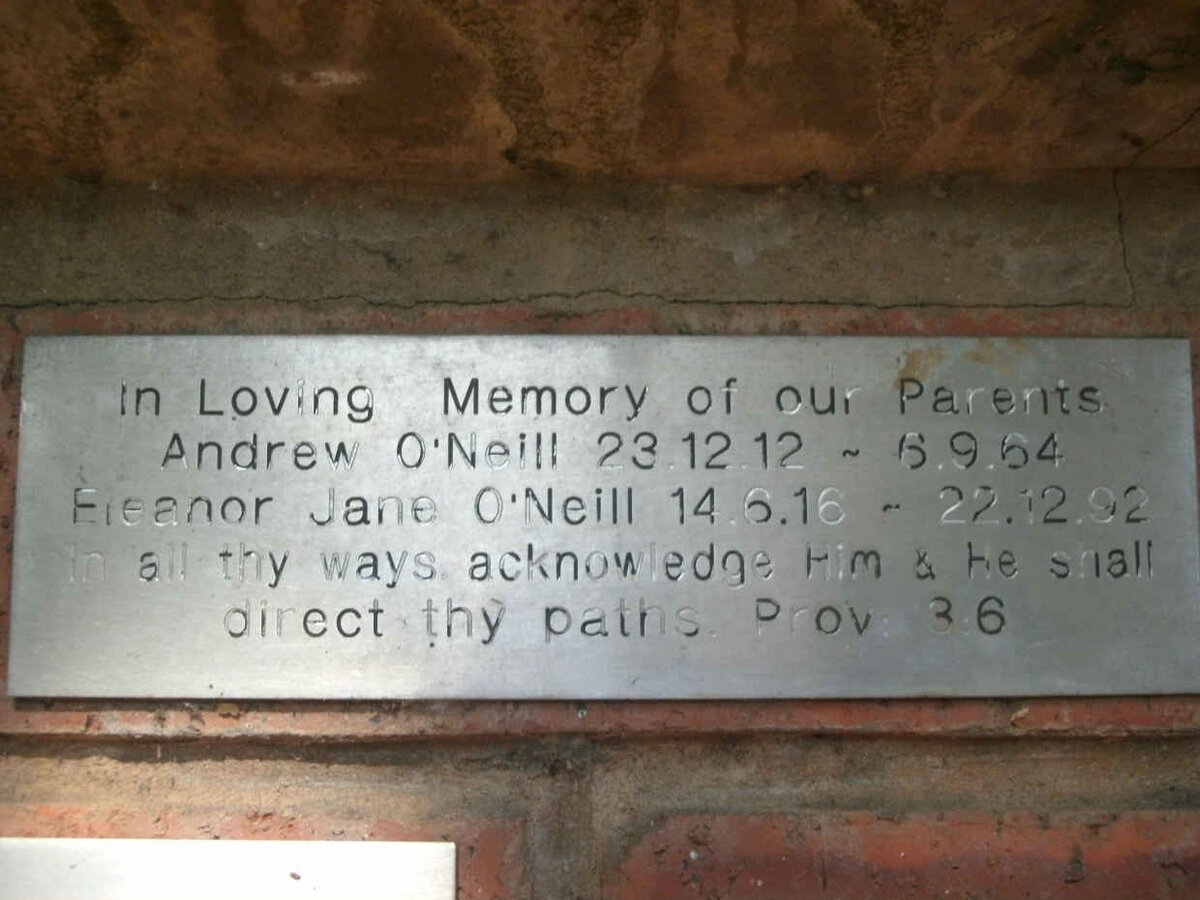 In Loving Memory of our Parents
Andrew O'Neill 23.12.12 ~ 6.9.64
Eleanor Jane O'Neill 14.6.16 ~ 22.12.92
In all thy ways acknowledge Him & He shall
direct thy paths. Prov. 3:6